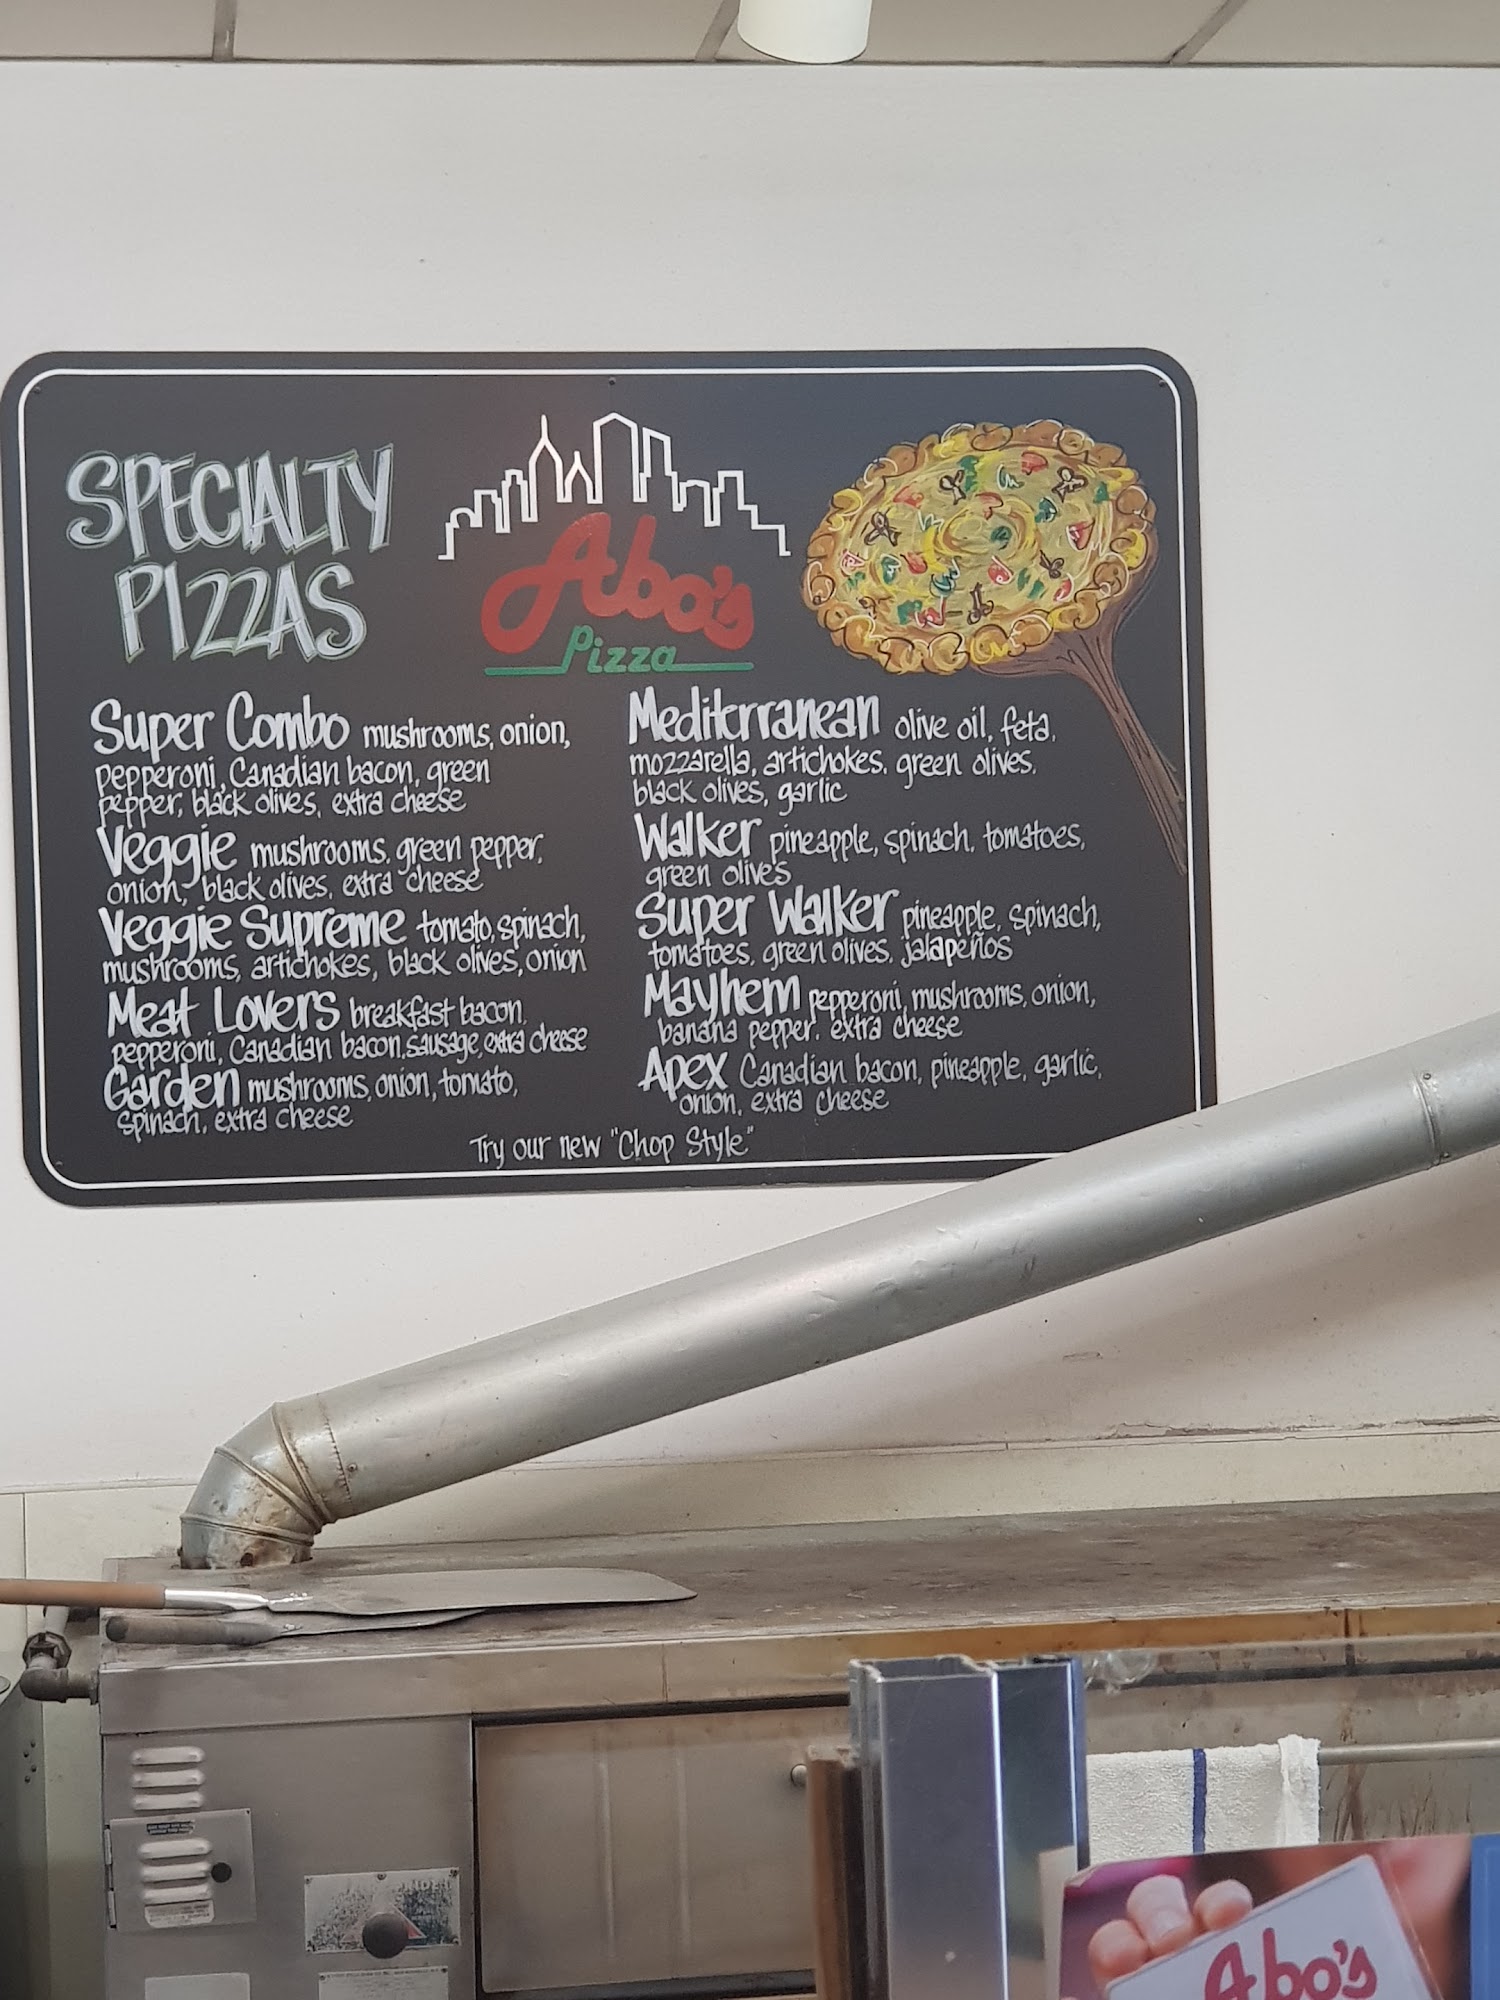 SPECIALTY
PIZZAS
Abo's
Pizza
Super Combo mushrooms, onion,
pepperoni, Canadian bacon, green
pepper, black olives, extra cheese
Veggie mushrooms, green pepper,
onion, black olives, extra cheese
Veggie Supreme tomato, spinach,
mushrooms, artichokes, black olives, onion
Meat Lovers breakfast bacon,
pepperoni, Canadian bacon, sausage, extra cheese
Garden mushrooms, onion, tomato,
spinach, extra cheese
Mediterranean olive oil, feta,
mozzarella, artichokes, green olives,
black olives, garlic
Walker pineapple, spinach, tomatoes,
green olives
Super Walker pineapple, spinach,
tomatoes, green olives, jalapeños
Mayhem pepperoni, mushrooms, onion,
banana pepper, extra cheese
Apex Canadian bacon, pineapple, garlic,
onion, extra cheese
Try our new "Chop Style"
Abo's